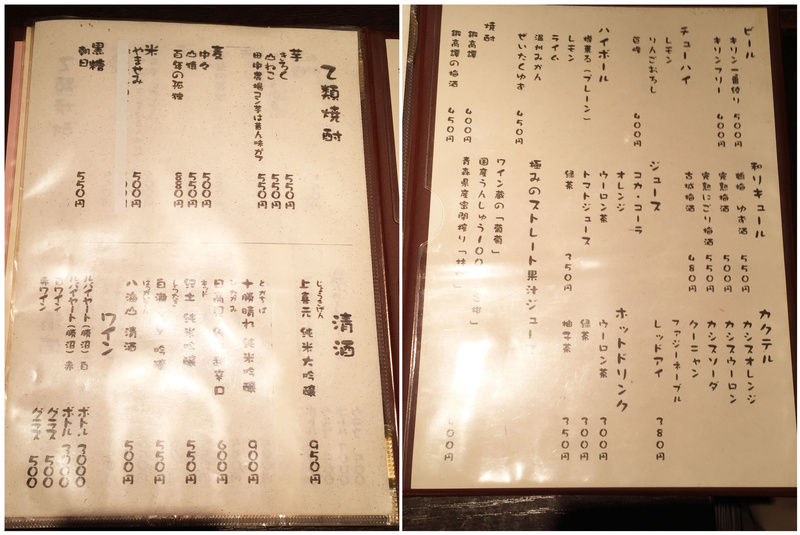 乙類焼酎
芋
きろく 550円
山ねこ 550円
田中農場コマン芋は昔ん味がう 550円
麦
中々 500円
山猿 550円
百年の孤独 880円
米
やませみ 500円
黒糖
朝日 550円
清酒
じょうきげん
上喜元 純米大吟醸 950円
とかちばれ
十勝晴れ 純米吟醸 900円
日高見 辛口 600円
きっど
紀土 純米吟醸 550円
しちだ
吟醸 550円
はっかいさん
八海山 清酒 500円
ワイン
ルバイヤート(勝沼)白 ボトル 3000
ルバイヤート(勝沼)赤 ボトル 3000
白ワイン グラス 500
赤ワイン グラス 500
ビール
キリン一番搾り 500円
キリンフリー 400円
チューハイ
レモン
りんごおろし
400円
ハイボール
レモン
ライム
温州みかん
ぜいたくゆず 450円
焼酎
鍛高譚 400円
鍛高譚の梅酒 450円
和リキュール
鶴梅 ゆず酒 550円
完熟梅酒 550円
完熟にごり梅酒 550円
古城梅酒 480円
ジュース
コカ・コーラ
オレンジ
ウーロン茶
トマトジュース
緑茶 350円
極みのストレート果汁ジュース
ワイン蔵の「葡萄」
国産うんしゅう100
青森県産密閉搾り「林
400円
カクテル
カシスオレンジ
カシスウーロン
カシスソーダ
クーニャン
ファジーネーブル
レッドアイ 380円
ホットドリンク
ウーロン茶 300円
緑茶 300円
柚子茶 350円